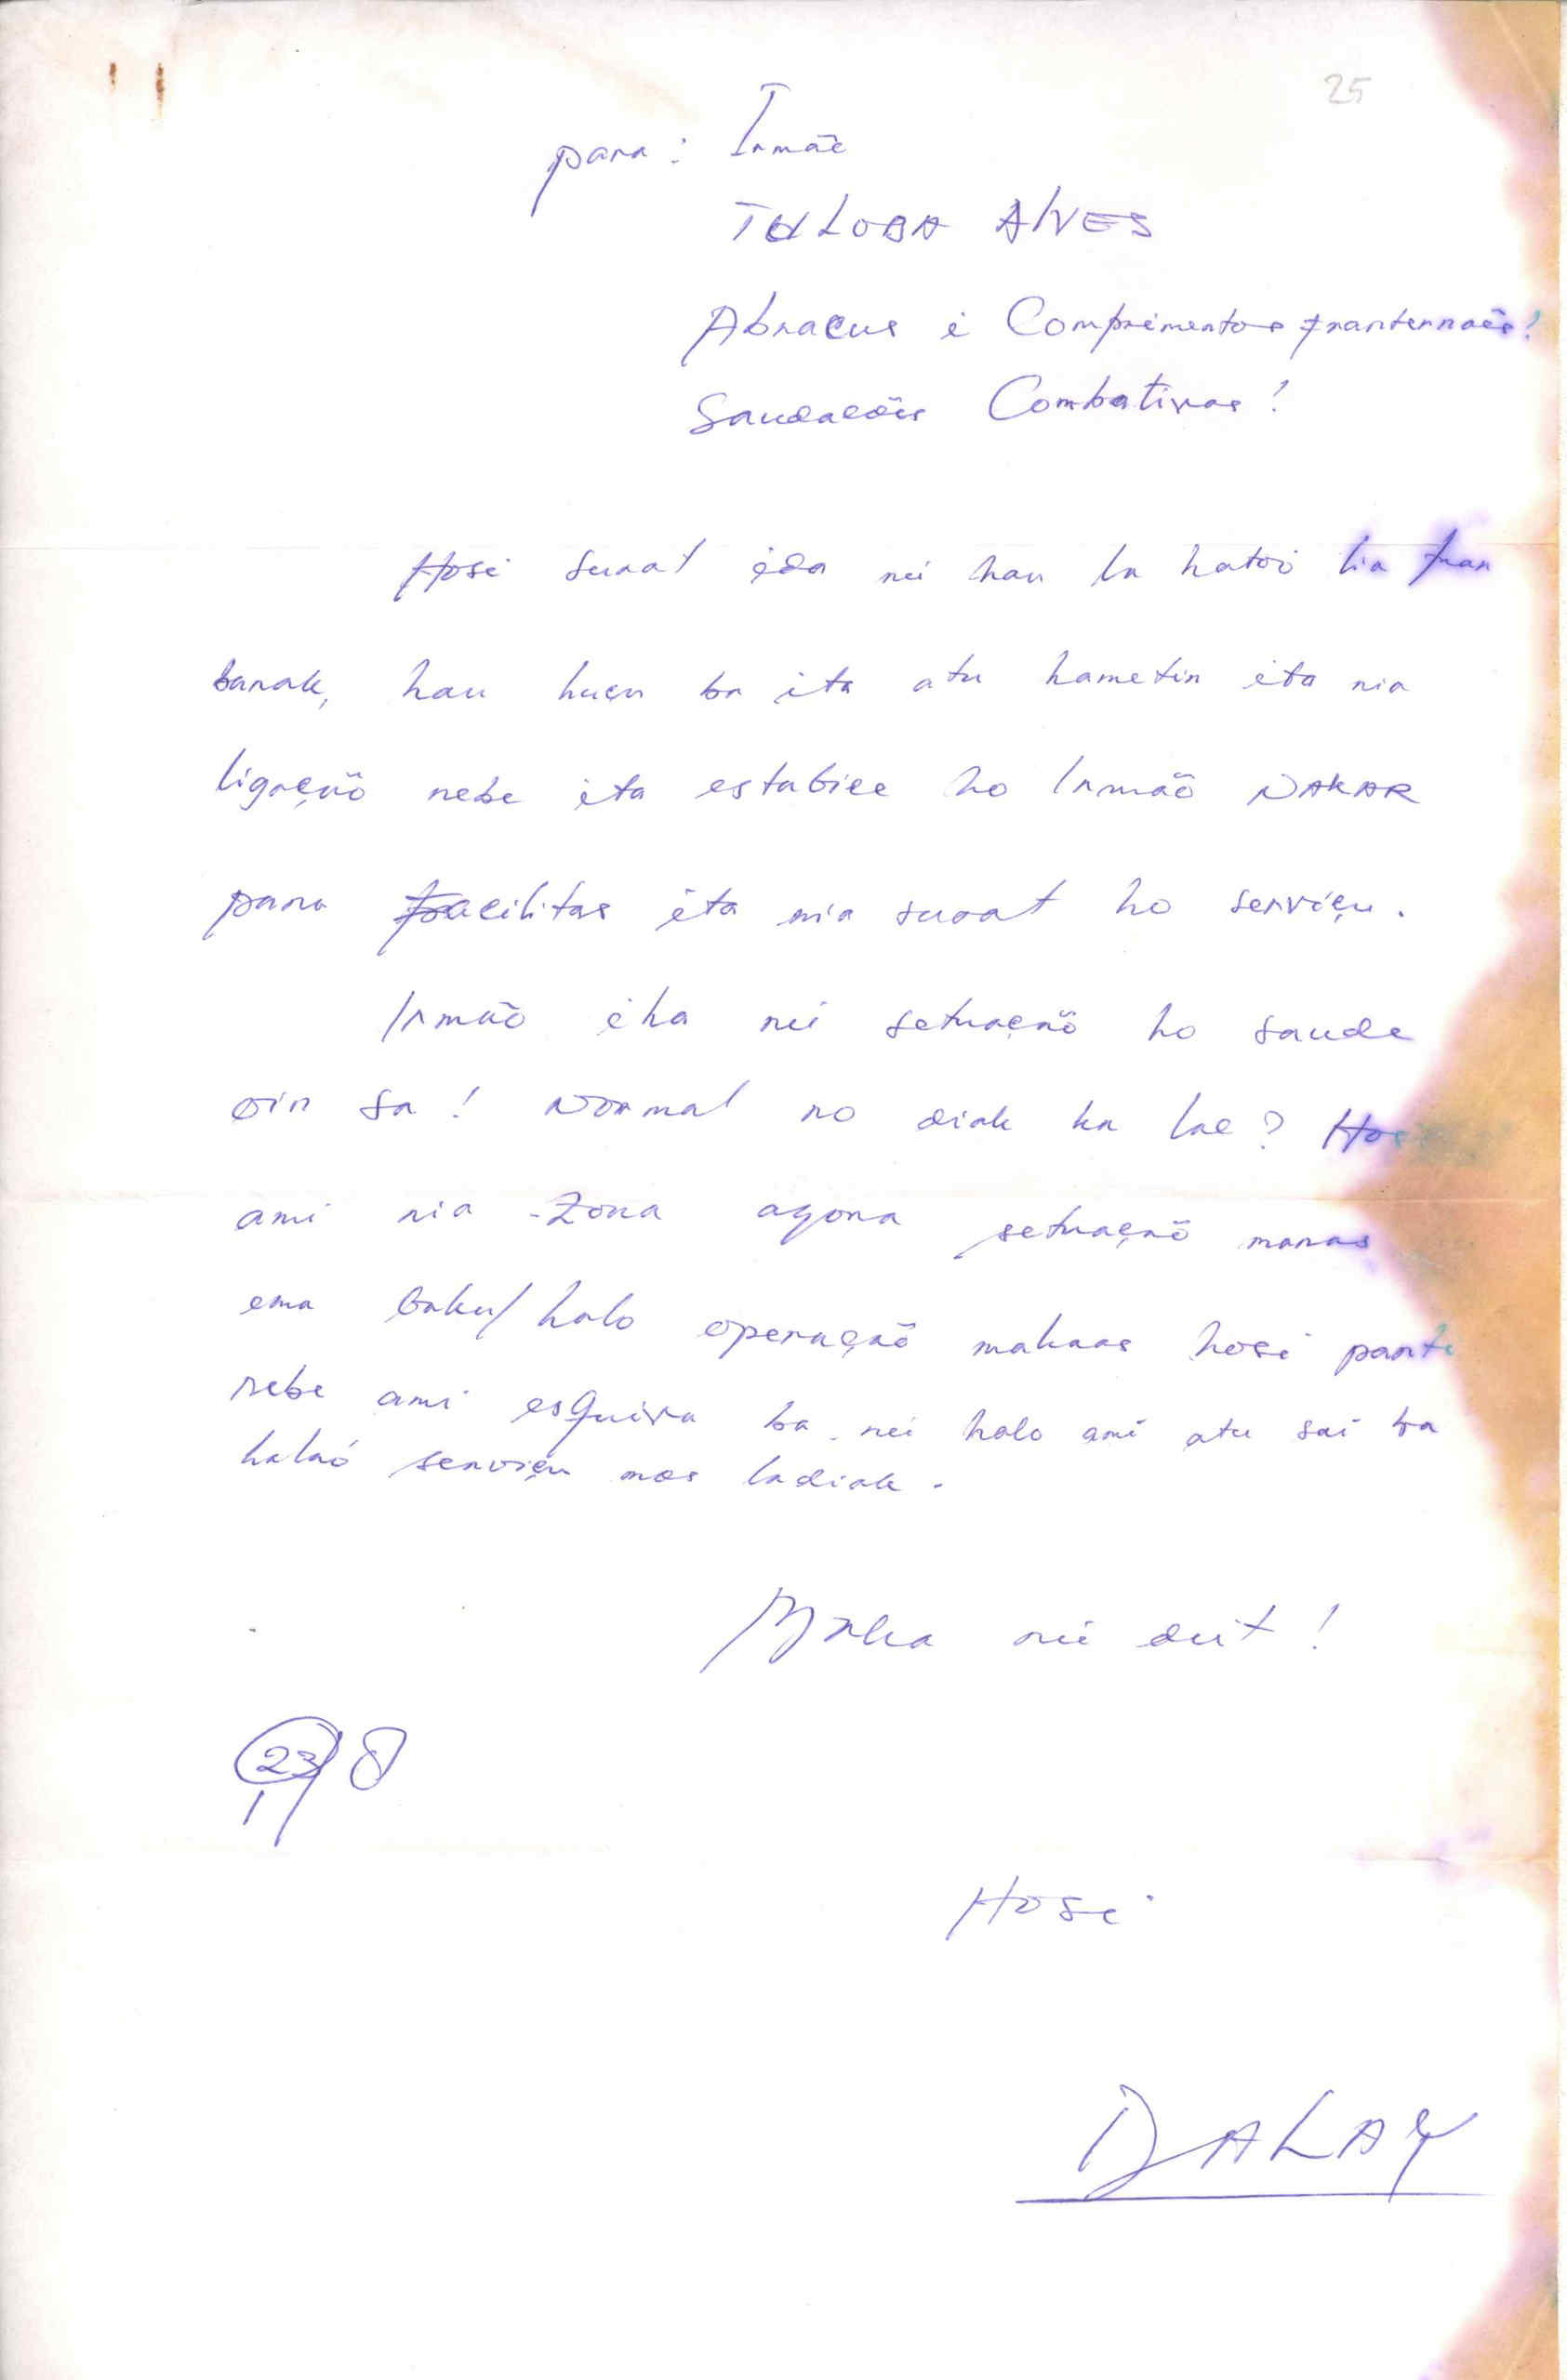 25
para: Irmão
TULOBA ALVES
Abracus i Comprimentos franternaes!
Saudacões Combativas!
Hosi surat ida nei hau la hatoi lia fuan
barak, hau husu ba ita atu hametin ita nia
ligação nebe ita estabice ho Irmão NAKAR
para facilitas ita nia surat ho serviçu.
Irmão iha nei setuação ho saude
oin sa! Normal no diak ka lae? Hosi
ami nia Zona agora setuação manas
ema baku/halo operação makaas hosi parte
nebe ami esquiva ba nei halo ami atu sai ba
halaó serviçu mos ladiak.
Maka nei deit!
23/8
Hosi
DALAY